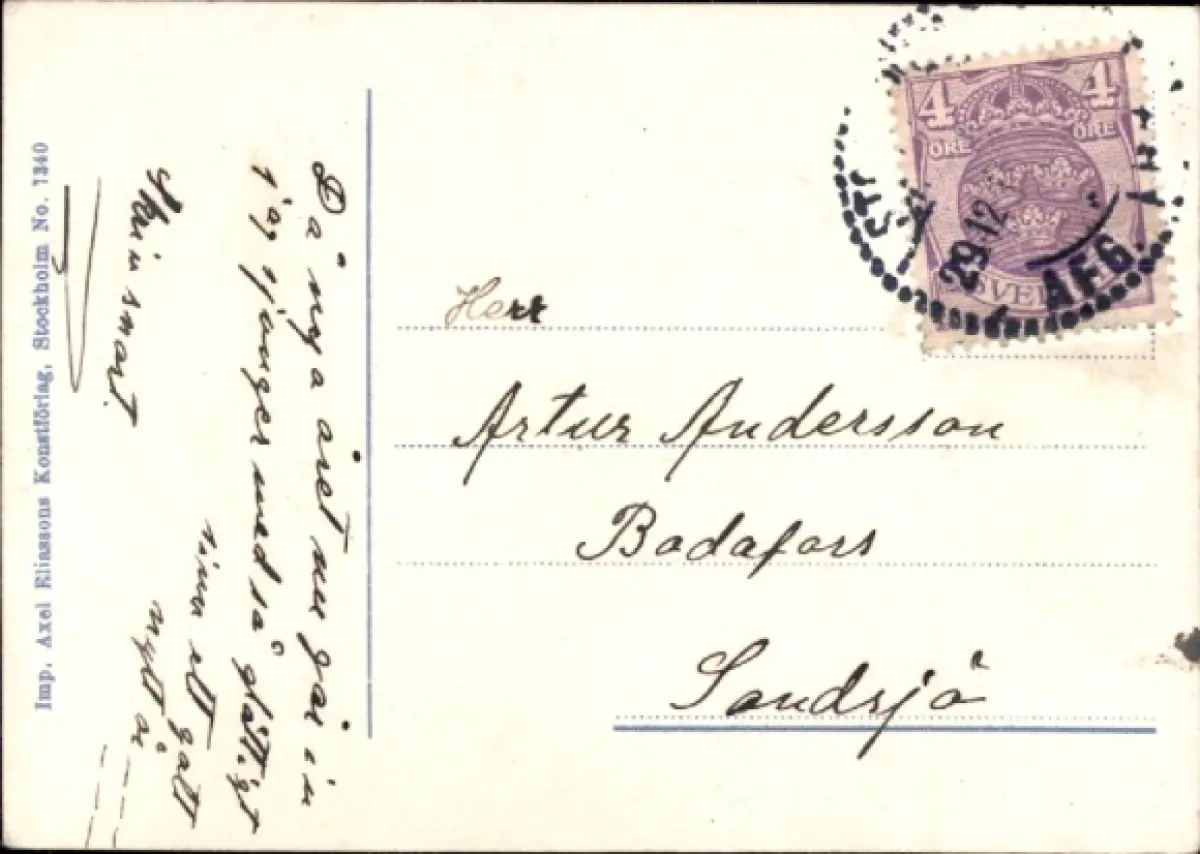 Imp. Axel Eliassons Konstförlag, Stockholm No. 1340
Då nya året nu går in
jag sjunger med så gött
ett gått
nytt år
4 4
ÖRE ÖRE
29.12
AFG.
SVE
Herr
Artur Andersson
Bodafors
Sandsjö